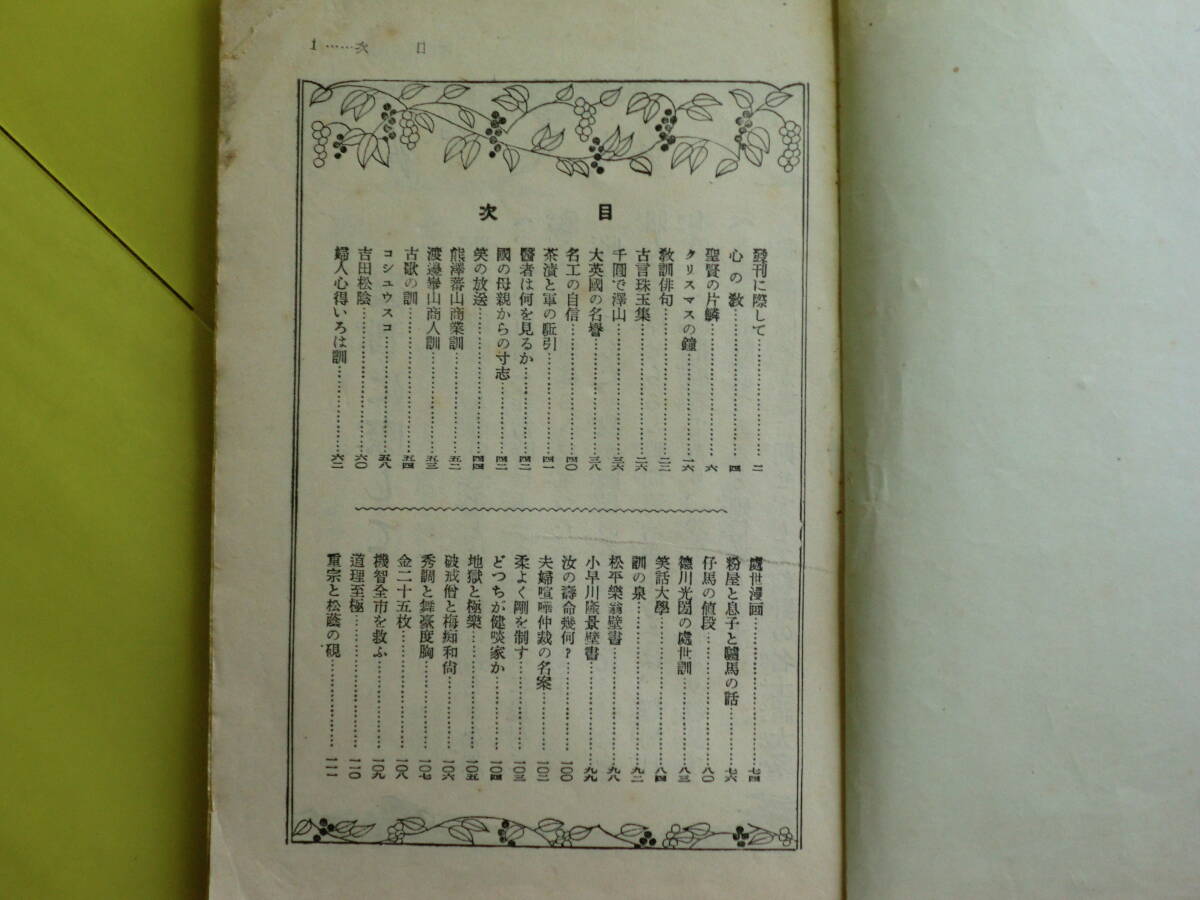 目 次……1
目 次
發刊に際して……二
心の教……四
聖賢の片鱗……六
クリスマスの鐘……一六
教訓俳句……二二
古言珠玉集……二六
千圓で澤山……三六
大英國の名譽……三八
名工の自信……四〇
茶漬と軍の駈引……四一
醫者は何を見るか……四二
國の母親からの寸志……四二
笑の放送……四四
熊澤蕃山商業訓……五二
渡邊崋山商人訓……五三
古歌の訓……五四
コシュウスコ……五八
吉田松陰……六〇
婦人心得いろは訓……六二
處世漫画……七四
粉屋と息子と驢馬の話……七六
仔馬の値段……八〇
德川光圀の處世訓……八三
笑話大學……八四
訓の泉……九二
松平樂翁壁書……九八
小早川隆景壁書……九九
汝の壽命幾何?……一〇〇
夫婦喧嘩仲裁の名案……一〇二
柔よく剛を制す……一〇三
どつちが健啖家か……一〇四
地獄と極樂……一〇五
破戒僧と梅痴和尙……一〇六
秀調と舞臺度胸……一〇七
金二十五枚……一〇八
機智全市を救ふ……一〇九
道理至極……一一〇
重宗と松蔭の硯……一一一